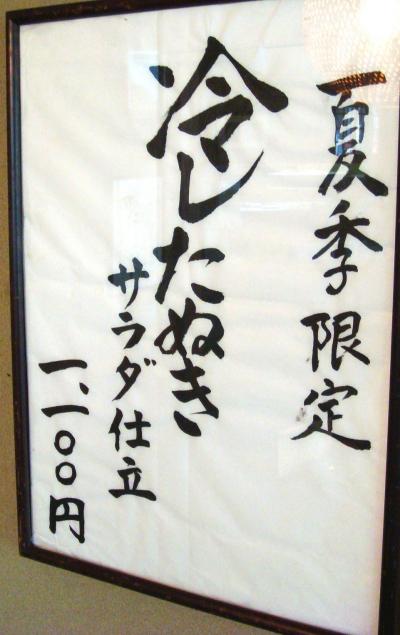 夏季限定
冷したぬき
サラダ仕立
一、一〇〇円